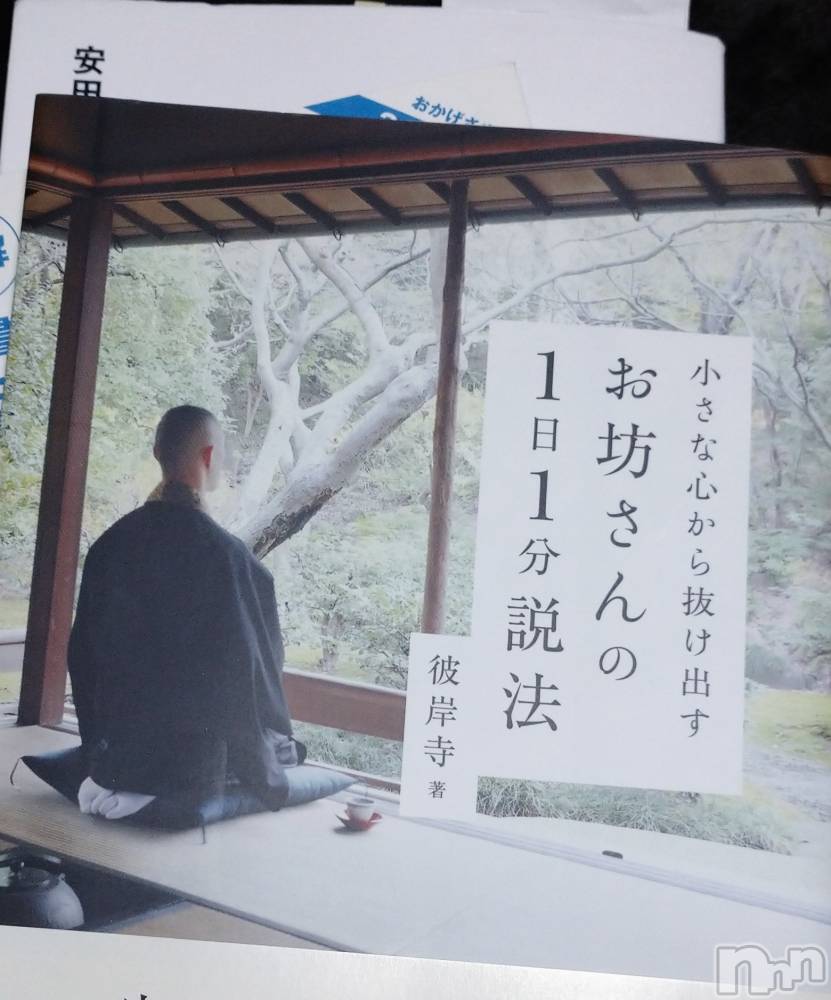 小さな心から抜け出す
お坊さんの
1日1分説法
彼岸寺 著
安田
おかげさま
nnn